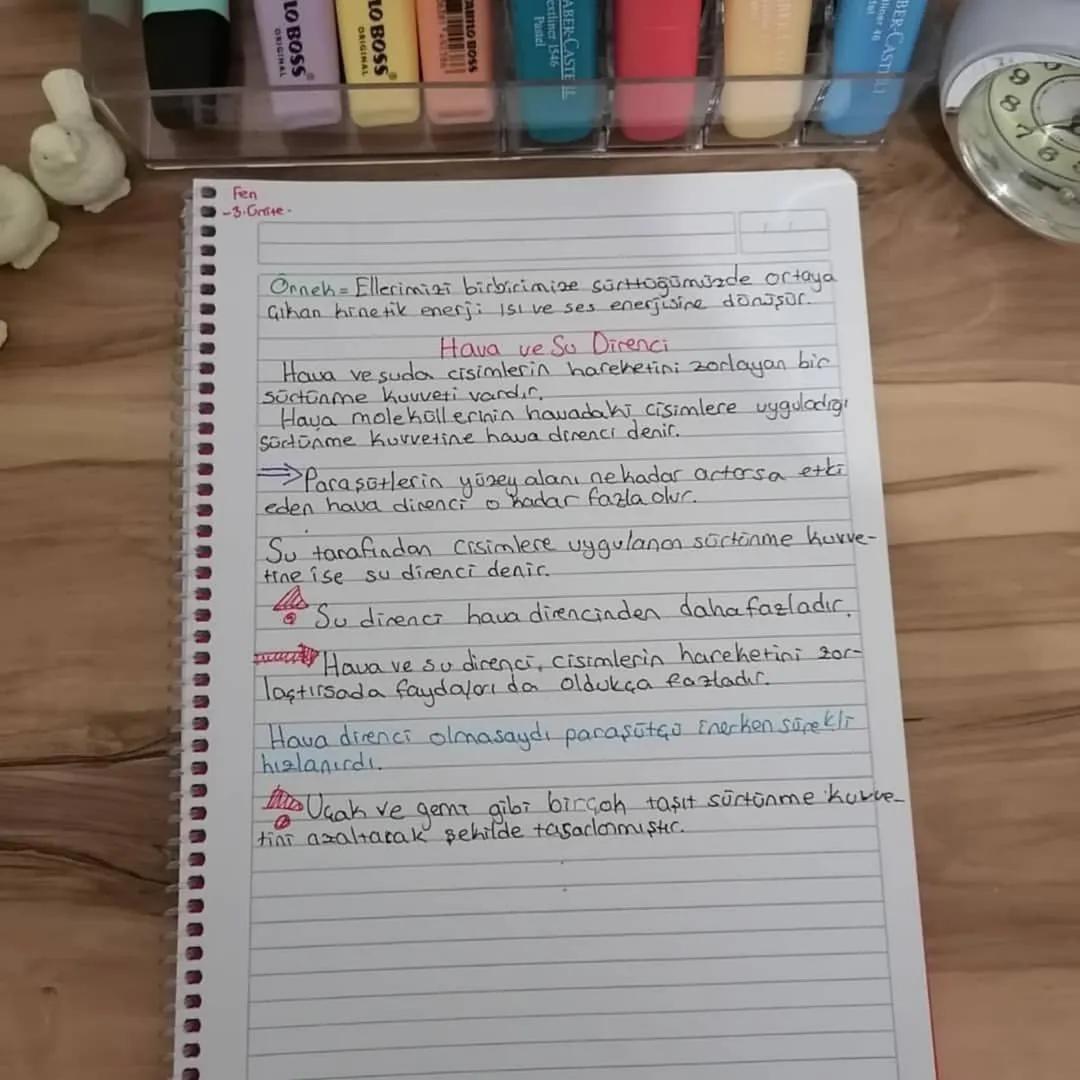 LO BOSS
ORIGINAL
LO BOSS
ORIGINAL
STABILO BOSS
FABER-CASTELL
Textliner 1546
Pastel
FABER-CASTELL
9
8
7
6
Fen
-3.Ünite-
Örnek = Ellerimizi birbirimize sürttüğümüzde ortaya
çıkan kinetik enerji ısı ve ses enerjisine dönüşür.
Hava ve Su Direnci
Hava ve suda cisimlerin hareketini zorlayan bir
sürtünme kuvveti vardır.
Hava moleküllerinin havadaki cisimlere uyguladığı
sürtünme kuvvetine hava direnci denir.
Paraşütlerin yüzey alanı ne kadar artarsa etki
eden hava direnci o kadar fazla olur.
Su tarafından cisimlere uygulanan sürtünme kuvve-
tine ise su direnci denir.
Su direnci hava direncinden daha fazladır.
Hava ve su direnci, cisimlerin hareketini zor-
laştırsada faydaları da oldukça fazladır.
Hava direnci olmasaydı paraşütçü inerken sürekli
hızlanırdı.
Uçak ve gemi gibi birçok taşıt sürtünme kuvve-
tini azaltacak şekilde tasarlanmıştır.